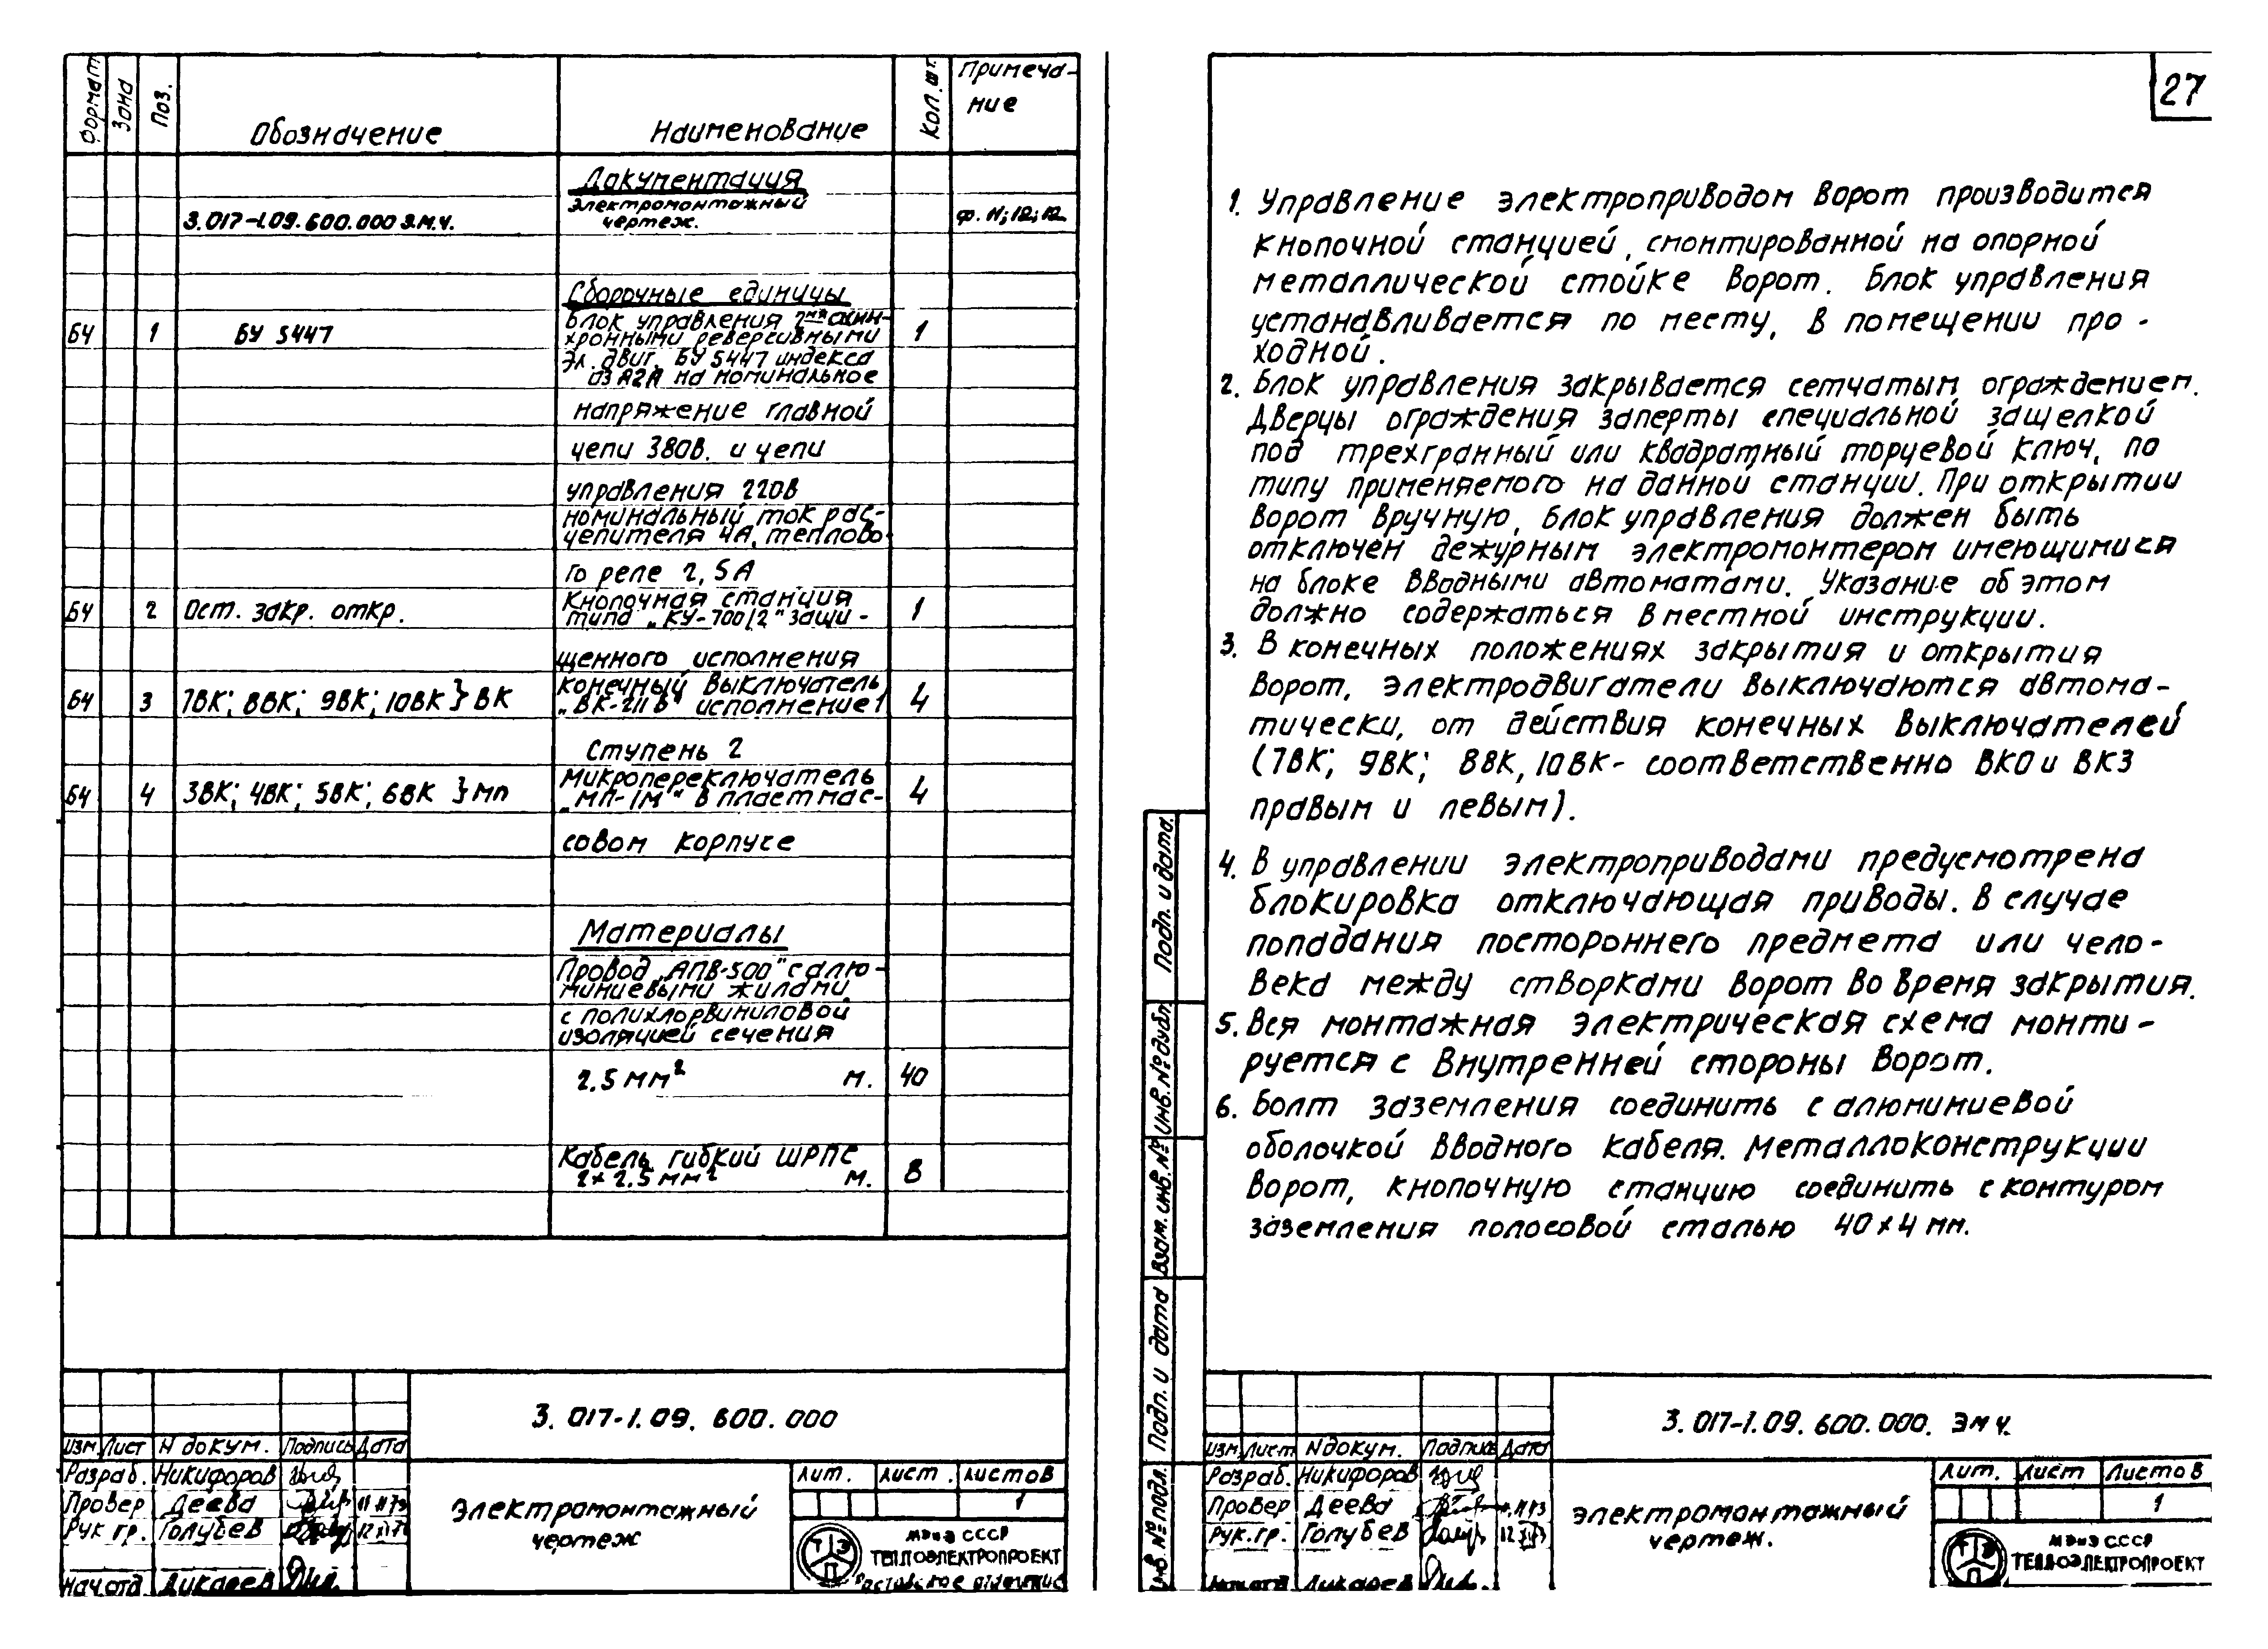 Формат
Зона
Поз.
Обозначение
Наименование
Кол. шт.
Примеча-
ние
Документация
3.017-1.09.600.000 Э.М.Ч.
Электромонтажный
чертеж.
ф. 11; 12; 12
Сборочные единицы
БЧ 1 БУ 5447
Блок управления 2мя асин-
хронными реверсивными
Эл. двиг. БУ 5447 индекса
03 А2А на номинальное
1
напряжение главной
цепи 380В. и цепи
управления 220В
номинальный ток рас-
цепителя 4А, теплово-
го реле 2,5А
БЧ 2 Ост. закр. откр.
Кнопочная станция
типа „КУ-700/2" защи-
1
щенного исполнения
БЧ 3 7ВК; 8ВК; 9ВК; 10ВК } ВК
конечный выключатель
„ВК-211В" исполнение 1
4
Ступень 2
БЧ 4 3ВК; 4ВК; 5ВК; 6ВК } МП
Микропереключатель
„МП-1М" в пластмас-
4
совом корпусе
Материалы
Провод „АПВ-500" с алю-
миниевыми жилами
с полихлорвиниловой
изоляцией сечения
2.5 мм² м. 40
Кабель гибкий ШРПС
2x2.5 мм² м. 8
3. 017-1. 09. 600. 000
Изм Лист N докум. Подпись Дата
Разраб. Никифоров
Провер Деева
Рук гр. Голубев
Нач отд. Дикарев
Электромонтажный
чертеж
Лит. Лист. Листов
1
ТЭП
МЭиЭ СССР
ТЕПЛОЭЛЕКТРОПРОЕКТ
Ростовское отделение
27
1. Управление электроприводом ворот производится
кнопочной станцией, смонтированной на опорной
металлической стойке ворот. Блок управления
устанавливается по месту, в помещении про -
ходной.
2. Блок управления закрывается сетчатым ограждением.
Дверцы ограждения заперты специальной защелкой
под трехгранный или квадратный торцевой ключ, по
типу применяемого на данной станции. При открытии
ворот вручную, блок управления должен быть
отключен дежурным электромонтером имеющимися
на блоке вводными автоматами. Указание об этом
должно содержаться в местной инструкции.
3. В конечных положениях закрытия и открытия
ворот, электродвигатели выключаются автома-
тически, от действия конечных выключателей
(7ВК; 9ВК; 8ВК, 10ВК- соответственно ВКО и ВКЗ
правым и левым).
4. В управлении электроприводами предусмотрена
блокировка отключающая приводы. В случае
попадания постороннего предмета или чело -
века между створками ворот во время закрытия.
5. Вся монтажная электрическая схема монти -
руется с внутренней стороны ворот.
6. Болт заземления соединить с алюминиевой
оболочкой вводного кабеля. Металлоконструкции
ворот, кнопочную станцию соединить с контуром
заземления полосовой сталью 40x4 мм.
Подп. и дата.
Инв. № дубл.
Взам. инв. №
Подп. и дата
Инв № подл.
3. 017-1.09. 600.000. ЭМЧ.
Изм. Лист N докум. Подпись Дата
Разраб. Никифоров
Провер Деева
Рук. гр. Голубев
Нач отд Дикарев
Электромонтажный
чертеж.
Лит. Лист Листов
1
ТЭП
МЭиЭ СССР
ТЕПЛОЭЛЕКТРОПРОЕКТ